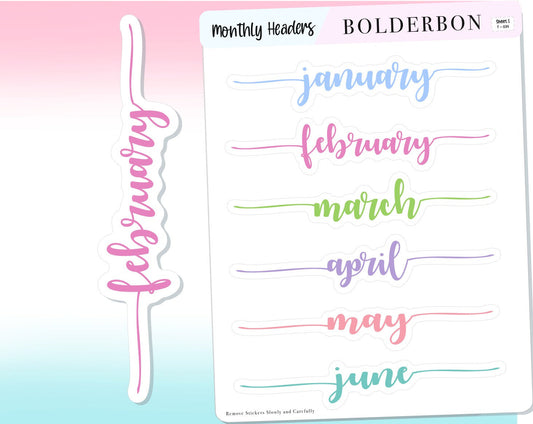 february
Monthly Headers
BOLDERBON
Sheet 1
january
february
march
april
may
june
Remove Stickers Slowly and Carefully